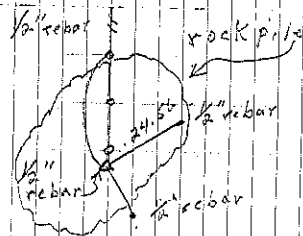 1/2" rebar
rock pile
24.56
1/2" rebar
1/2"
rebar
1/2" rebar